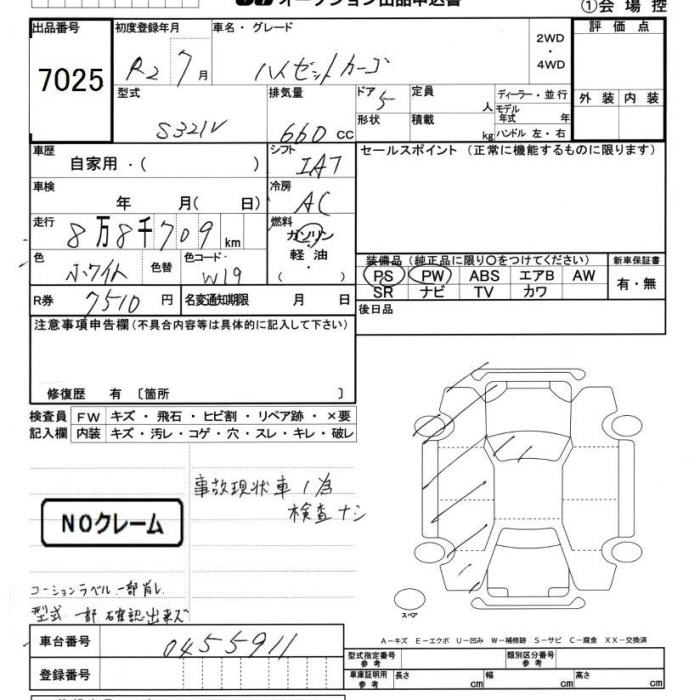 オークション出品申込書
①会 場 控
出品番号
7025
初度登録年月
R2 7月
車名・グレード
ハイゼットカーゴ
2WD
・
4WD
評 価 点
外 装 内 装
型式
S321V
排気量
660 cc
ドア
5
形状
定員
人
積載
kg
ディーラー・並行
モデル年式 年
ハンドル 左・右
車歴
自家用・( )
シフト
IAT
セールスポイント (正常に機能するものに限ります)
車検
年 月( 日)
冷房
AC
走行
8万8千709 km
燃料
ガソリン
・
軽 油
・
色
ホワイト
色替
色コード
W19
装備品 (純正品に限り○をつけてください)
PS PW ABS エアB AW
SR ナビ TV カワ
新車保証書
有・無
R券 7510 円
名変通知期限 月 日
後日品
注意事項申告欄(不具合内容等は具体的に記入して下さい)
修復歴 有 〔箇所 〕
検査員 FW キズ・飛石・ヒビ割・リペア跡・×要
記入欄 内装 キズ・汚レ・コゲ・穴・スレ・キレ・破レ
事故現状車
検査ナシ
NOクレーム
コーションラベル一部消し
型式一部確認出来ズ
スペア
A-キズ E-エクボ U-凹み W-補修跡 S-サビ C-腐食 XX-交換済
車台番号 0455911
登録番号
型式指定番号
参考
類別区分番号
参考
車庫証明用
参考
長さ cm
幅 cm
高さ cm